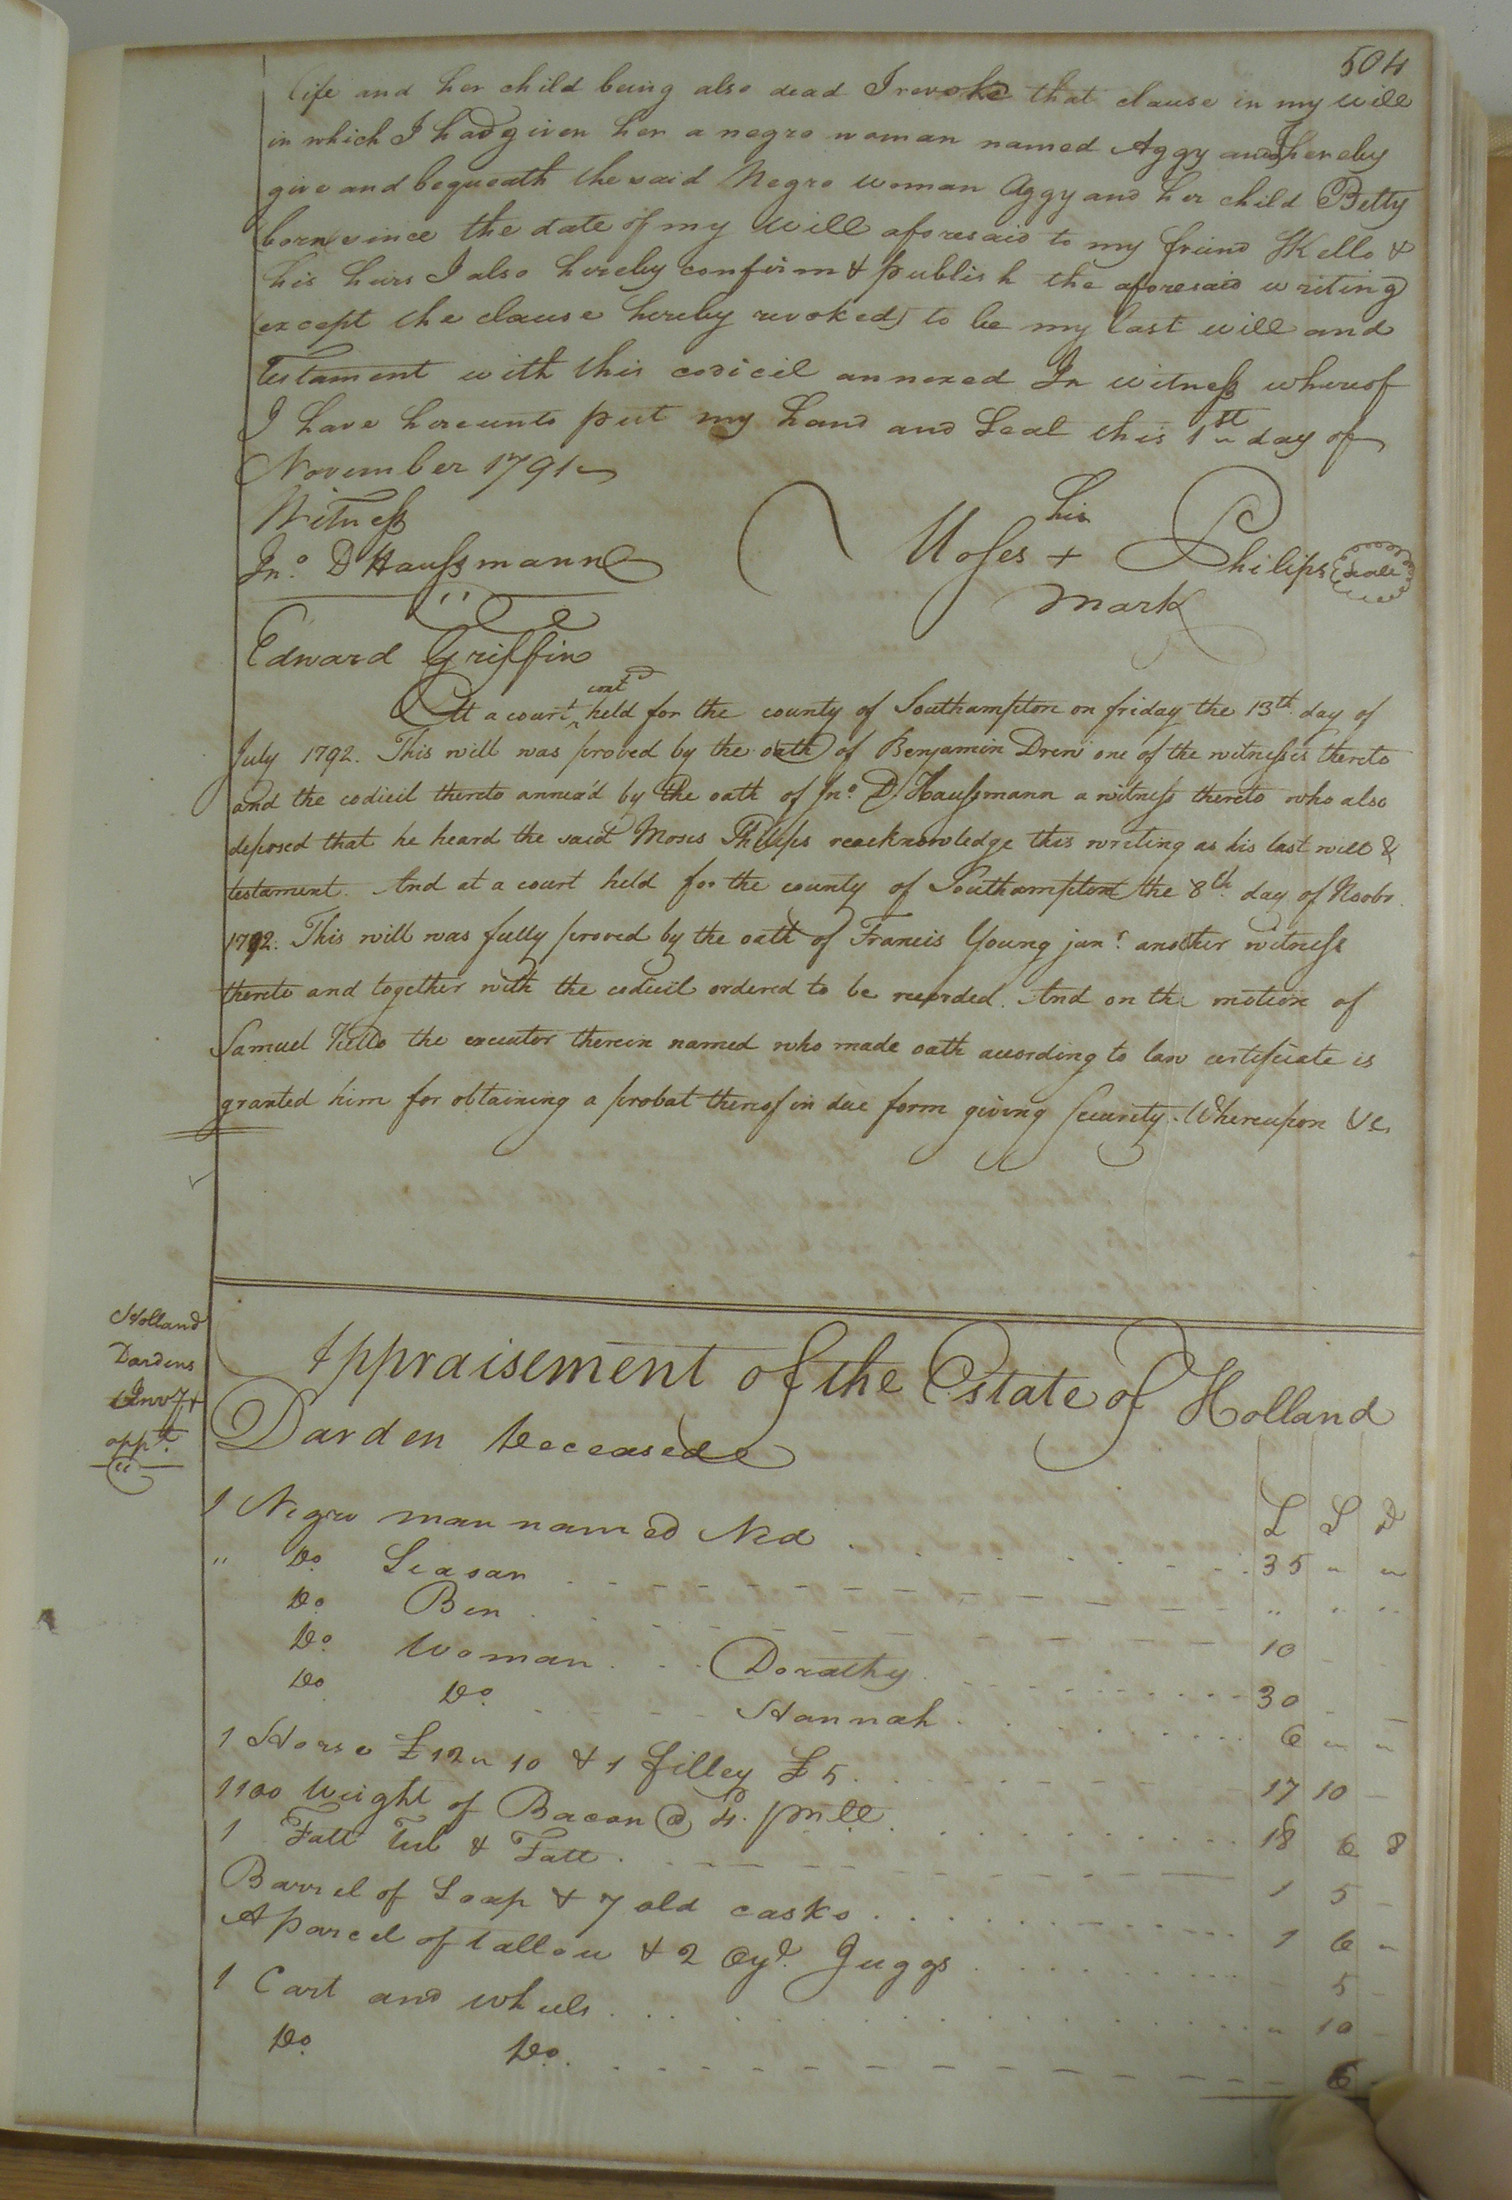 504
life and her child being also dead I revoke that clause in my will
in which I had given her a negro woman named Aggy and I hereby
give and bequeath the said Negro woman Aggy and her child Betty
(born since the date of my will aforesaid to my friend SKello &
his heirs I also hereby confirm & publish the aforesaid writing
(except the clause hereby revoked) to be my last will and
Testament with this codicil annexed In witness whereof
I have hereunto put my hand and Seal this 1st day of
November 1791
Witness
his
Jno. D Haussmann
Moses + Philips Seal
mark
Edward Griffin
At a court contd held for the county of Southampton on friday the 13th day of
July 1792. This will was proved by the oath of Benjamin Drew one of the witnesses thereto
and the codicil thereto annex'd by the oath of Jno. D Haussmann a witness thereto who also
deposed that he heard the said Moses Philips reacknowledge this writing as his last will &
testament. And at a court held for the county of Southampton the 8th day of Novbr.
1792. This will was fully proved by the oath of Francis Young junr. another witness
thereto and together with the codicil ordered to be recorded. And on the motion of
Samuel Kello the executor therein named who made oath according to law certificate is
granted him for obtaining a probat thereof in due form giving security. Whereupon &c.
Holland
Dardens
Invy &
appt.
Appraisement of the Estate of Holland
Darden Deceased
£ S D
1 Negro man named Ned 35 " "
" Do. Seasar " " "
Do. Ben 10
Do. Woman Dorathy 30
Do Do. Hannah 6 " "
1 Horse £12 " 10 & 1 filley £5 17 10
1100 Weight of Bacon @ 4d. pr. lb. 18 6 8
1 Fatt Tub & Fatt 1 5
Barrel of Soap & 7 old casks 1 6 "
A parcel of tallow & 2 Juggs 5
1 Cart and wheels " 10
Do. Do. 6